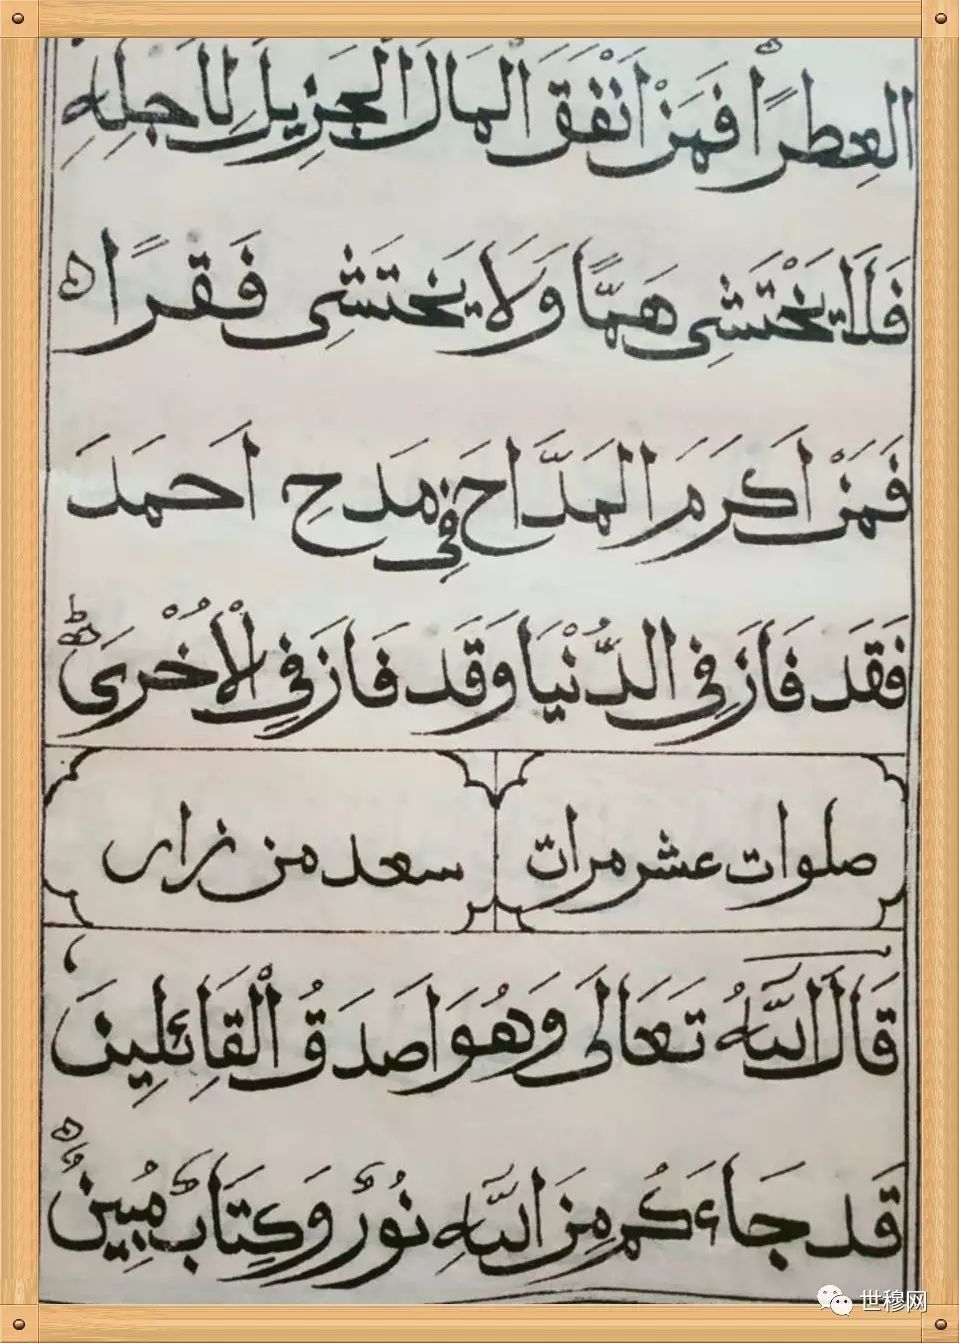 العِطرًا فَمَنْ اَنْفَقَ المَالَ الجَزِيلَ لِاَجلِهِ
فَلَا يَخْتَشِى هَمًّا وَلَا يَختَشِى فَقرًا
فَمَنْ اَكرَمَ المَدَّاحَ فِى مَدحِ اَحمَدَ
فَقَد فَازَ فِى الدُّنْيَا وَقَد فَازَ فِى الْاُخْرَى ط
صلوات عشر مرات
سعد من زار
قَالَ اللَّهُ تَعَالَى وَهُوَ اَصدَقُ الْقَائِلِينَ
قَد جَاءَكُم مِنَ اللَّهِ نُورٌ وَكِتَابٌ مُبِينٌ
世穆网